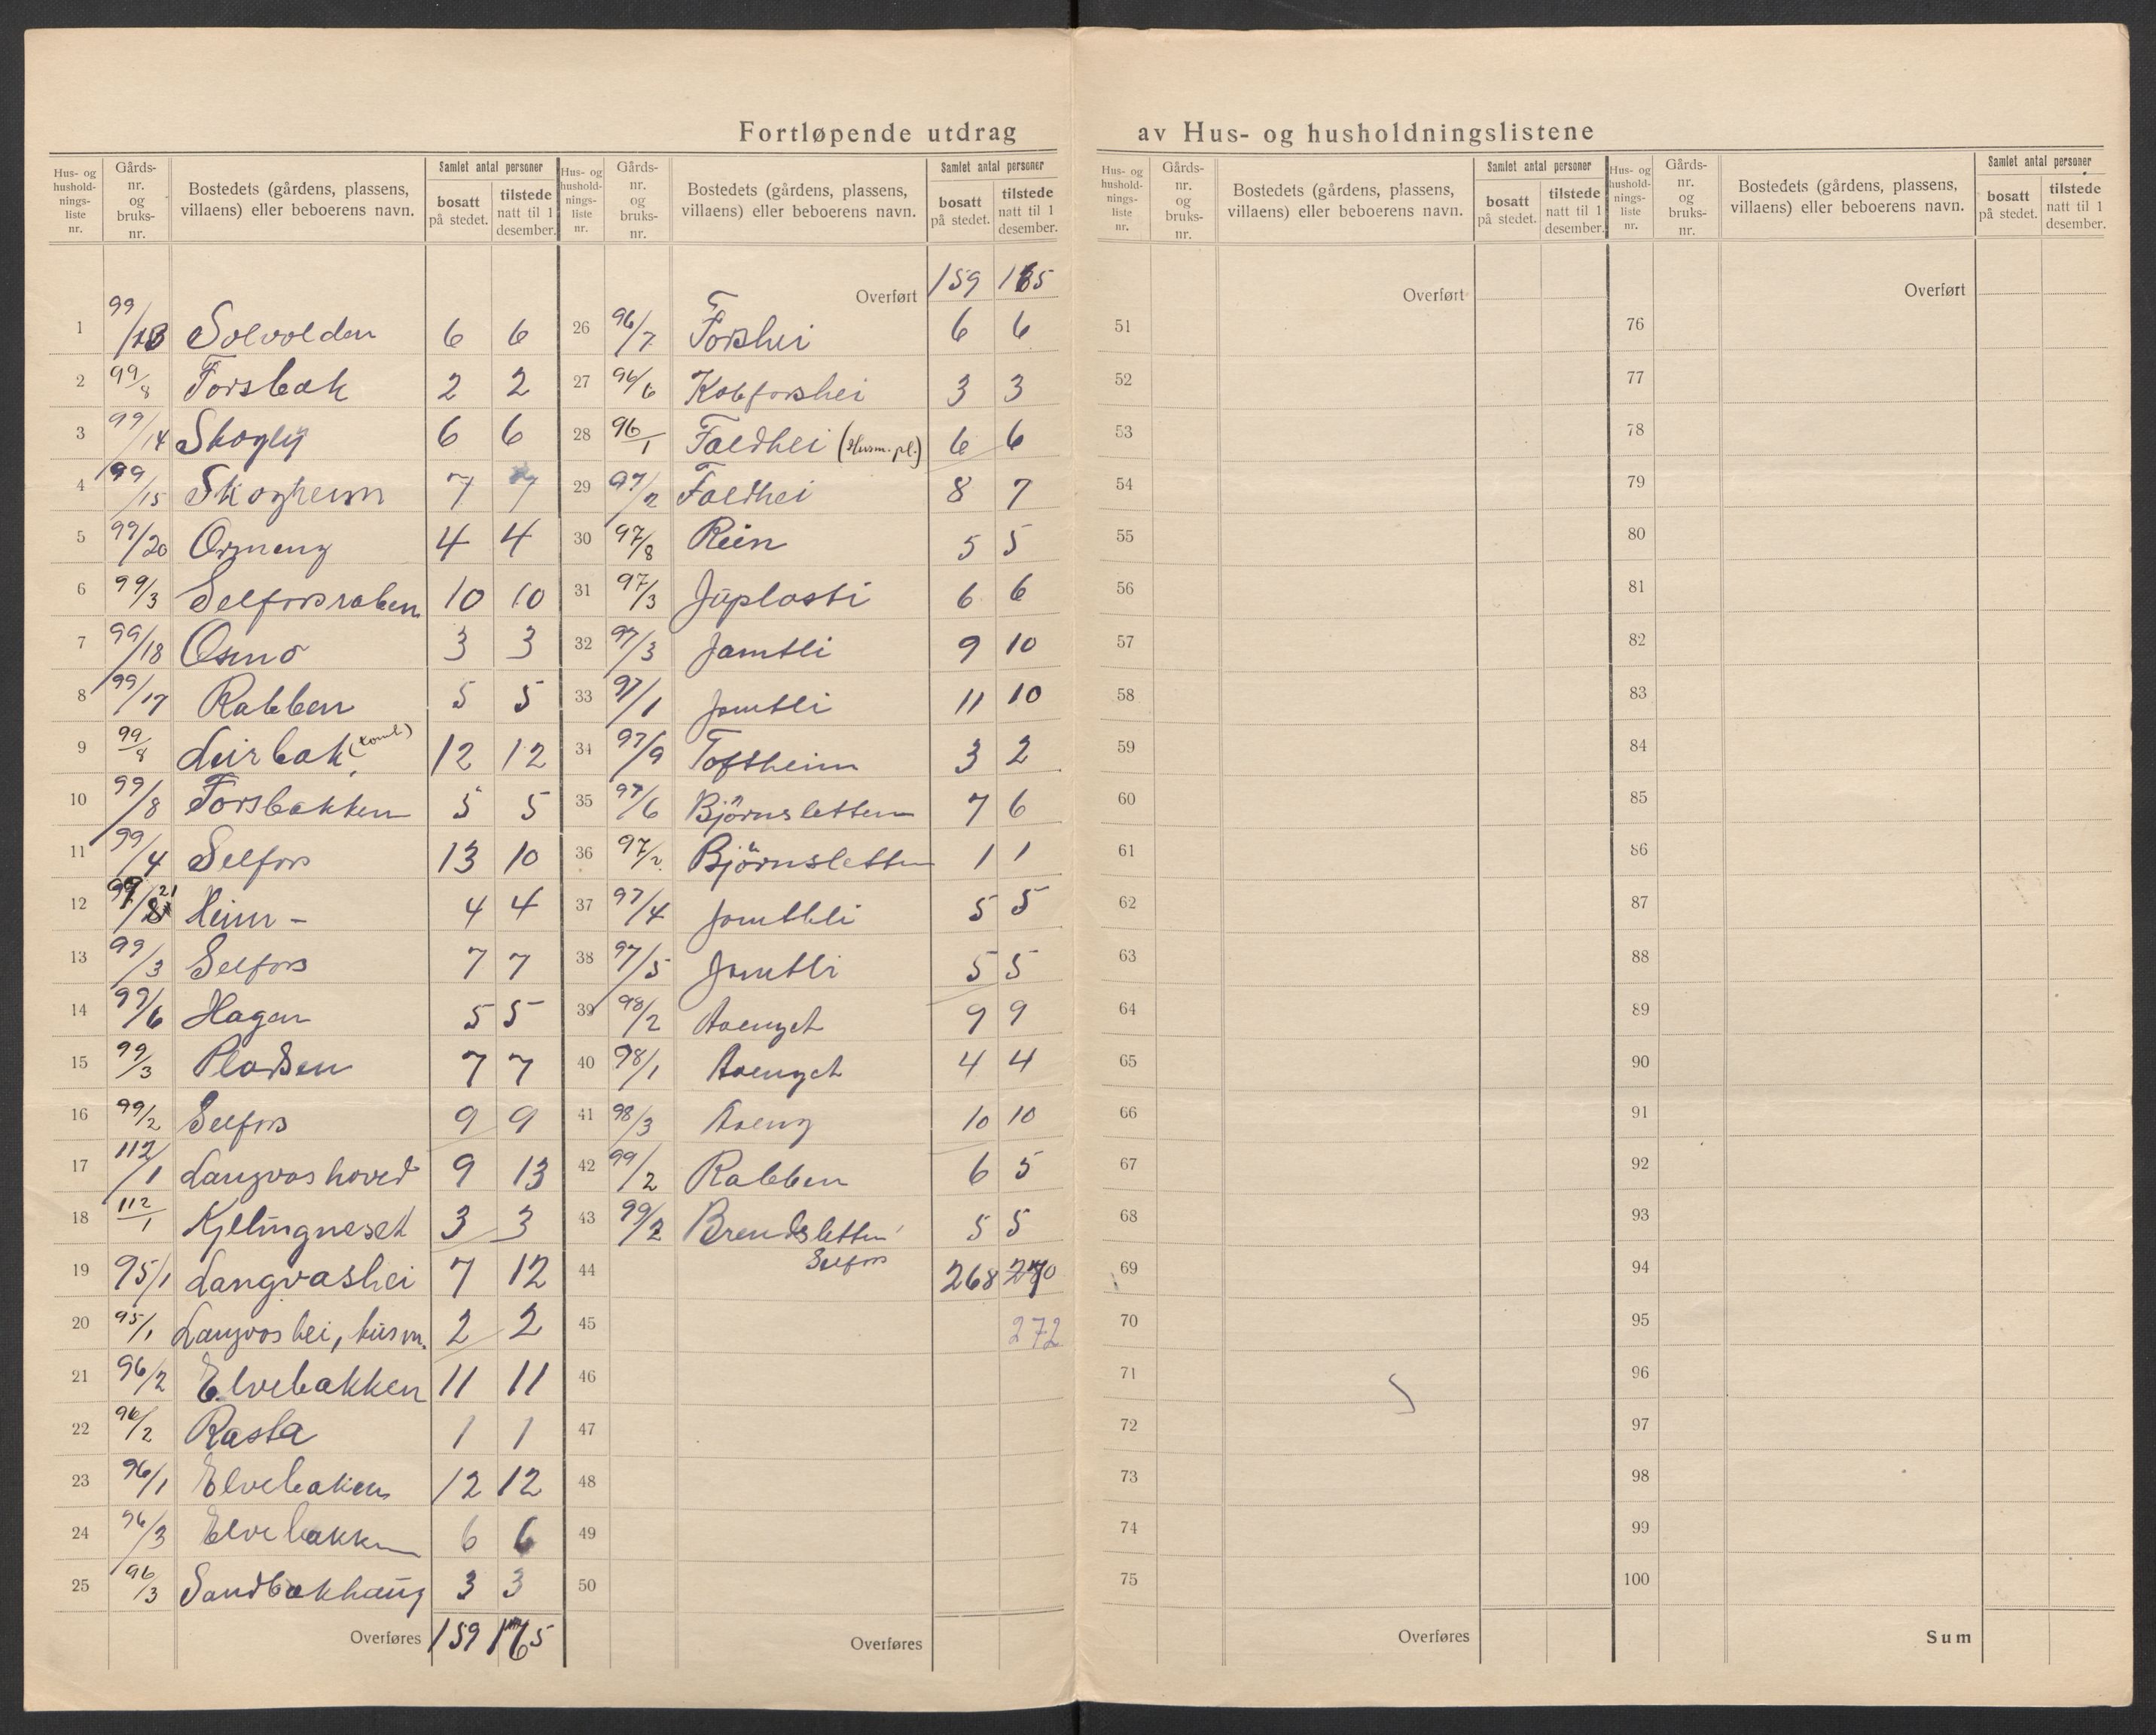 Fortløpende utdrag av Hus- og husholdningslistene
Hus- og hushold- nings- liste nr. | Gårds- nr. og bruks- nr. | Bostedets (gårdens, plassens, villaens) eller beboerens navn. | Samlet antal personer | bosatt på stedet. | tilstede natt til 1 desember.
1 99/ Solvolden 6 6
2 99/8 Forsbak 2 2
3 99/14 Skogly 6 6
4 99/15 Skogheim 7 7
5 99/20 Ormeng 4 4
6 99/3 Selforsraben 10 10
7 99/18 Osmo 3 3
8 99/17 Rabben 5 5
9 99/8 Leirbak (tomt) 12 12
10 99/8 Forsbakken 5 5
11 99/4 Selfors 13 10
12 99/21 Heim - 4 4
13 99/3 Selfors 7 7
14 99/6 Hagen 5 5
15 99/3 Pladsen 7 7
16 99/2 Selfors 9 9
17 112/1 Langvashoved 9 13
18 112/1 Kjellingneset 3 3
19 95/1 Langvashei 7 12
20 95/1 Langvashei, husm. 2 2
21 96/2 Elvebakken 11 11
22 96/2 Rasta 1 1
23 96/1 Elvebaken 12 12
24 96/3 Elvebakken 6 6
25 96/3 Sandbakhaug 3 3
Overføres 159 165
Hus- og hushold- nings- liste nr. | Gårds- nr. og bruks- nr. | Bostedets (gårdens, plassens, villaens) eller beboerens navn. | Samlet antal personer | bosatt på stedet. | tilstede natt til 1 desember.
Overført 159 165
26 96/7 Forshei 6 6
27 96/6 Kobforshei 3 3
28 96/1 Faldhei (Husm.pl.) 6 6
29 97/2 Faldhei 8 7
30 97/8 Rein 5 5
31 97/3 Juplasti 6 6
32 97/3 Jamtli 9 10
33 97/1 Jamtli 11 10
34 97/9 Toftheim 3 2
35 97/6 Björnsletten 7 6
36 97/2 Björnsletten 1 1
37 97/4 Jamtli 5 5
38 97/5 Jamtli 5 5
39 98/2 Avenget 9 9
40 98/1 Avenget 4 4
41 98/3 Aveng 10 10
42 99/2 Rabben 6 5
43 99/2 Brendsletten 5 5
Selfors
44 268 270
45 272
46
47
48
49
50
Overføres
Hus- og hushold- nings- liste nr. | Gårds- nr. og bruks- nr. | Bostedets (gårdens, plassens, villaens) eller beboerens navn. | Samlet antal personer | bosatt på stedet. | tilstede natt til 1 desember.
Overført
51
52
53
54
55
56
57
58
59
60
61
62
63
64
65
66
67
68
69
70
71
72
73
74
75
Overføres
Hus- og hushold- nings- liste nr. | Gårds- nr. og bruks- nr. | Bostedets (gårdens, plassens, villaens) eller beboerens navn. | Samlet antal personer | bosatt på stedet. | tilstede natt til 1 desember.
Overført
76
77
78
79
80
81
82
83
84
85
86
87
88
89
90
91
92
93
94
95
96
97
98
99
100
Sum